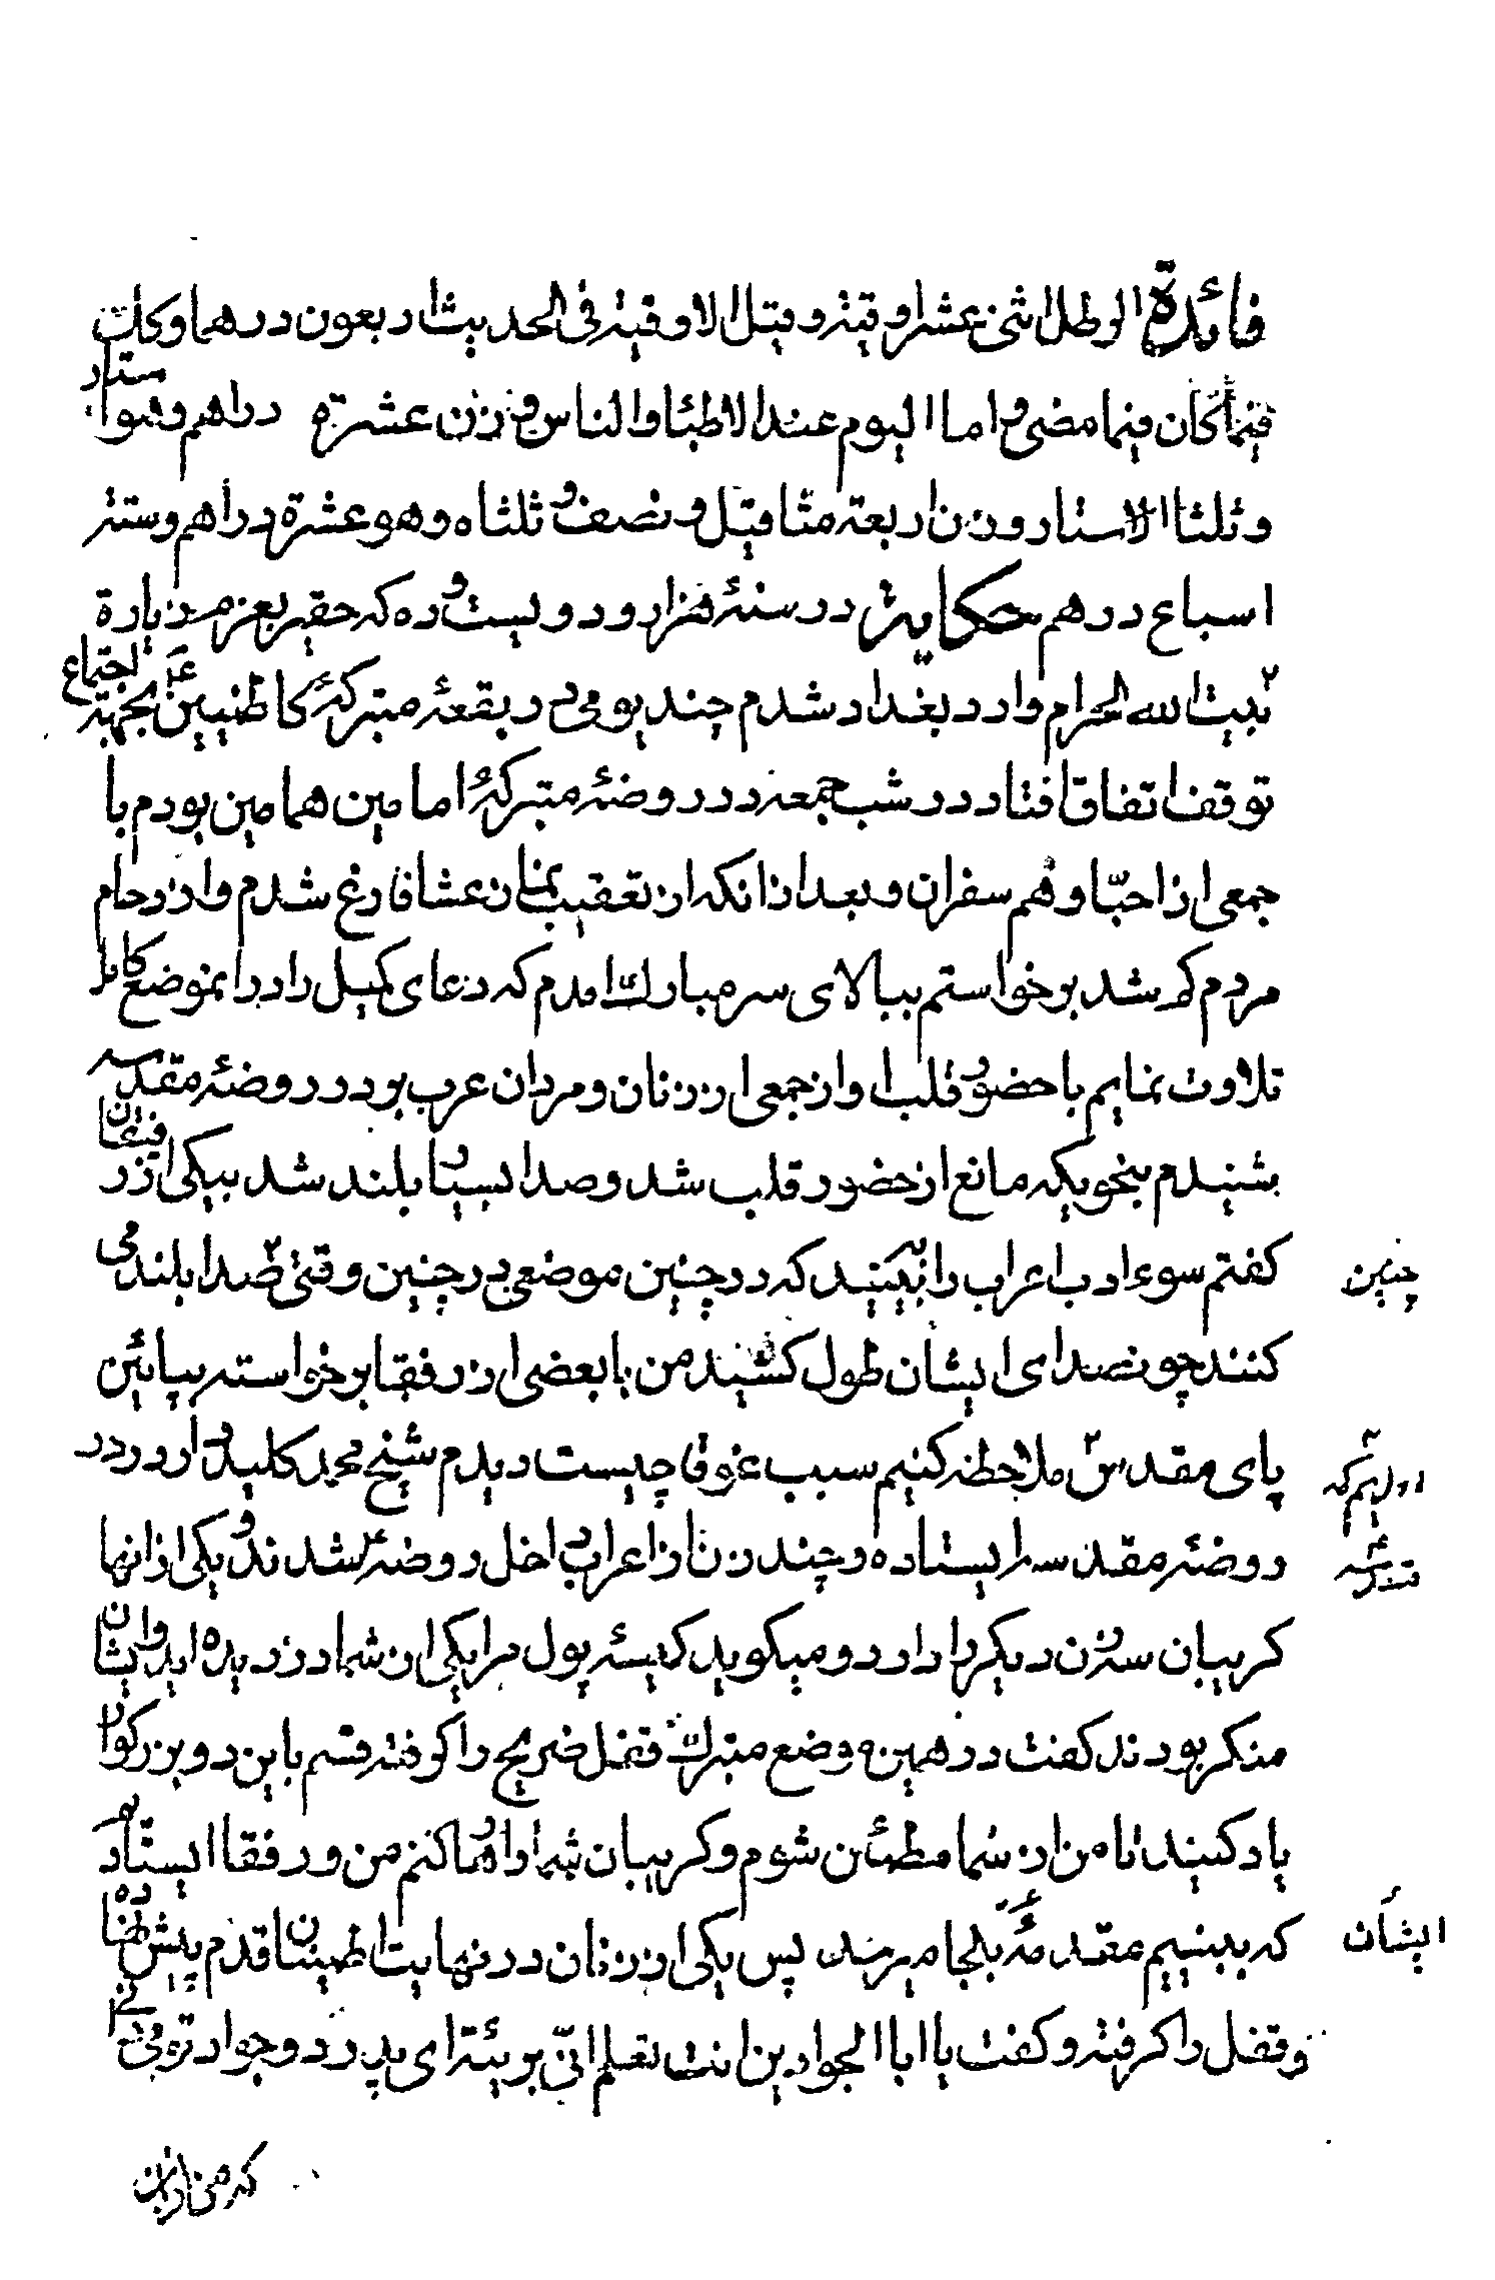 فائدة الرطل اثنی عشر اوقیة و قیل الاوقیة فی الحدیث اربعون درهما وکان
فیما کان فیما مضی و اما الیوم عند الاطباء والناس فوزن عشرة دراهم وهو استار
وثلثا الاستار وزن اربعة مثاقیل و نصف و ثلثاه وهو عشرة دراهم وستة
اسباع درهم حکایة در سنهٔ هزار و دویست و ده که حقیر بعزم زیارة
بیت الله الحرام وارد بغداد شدم چند یومی در بقعهٔ متبرکهٔ کاظمیین ع بجهة اجتماع
توقف اتفاق افتاد در شب جمعه در روضهٔ متبرکهٔ امامین همامین بودم با
جمعی از احبّا و هم سفران و بعد از انکه از تعقیب نماز عشا فارغ شدم و ازدحام
مردم کم شد برخواستم ببالای سر مبارک امدم که دعای کمیل را در انموضع کامل
تلاوت نمایم با حضور قلب اواز جمعی از زنان و مردان عرب بود در روضهٔ مقدسه
بشنیدم بنحویکه مانع از حضور قلب شد و صدا بسیار بلند شد بیکی از رفیقان
کفتم سوء ادب اعراب را ببینید که در چنین موضعی در چنین وقتی صدا بلند می
چنین
کنند چون صدای ایشان طول کشید من با بعضی از رفقا برخواسته بپایین
پای مقدس ملاحظه کنیم سبب غوغا چیست دیدم شیخ محمد کلیددار در
روضهٔ مقدسه ایستاده و چند زن از اعراب داخل روضه شدند و یکی از انها
کریبان سه زن دیکر را دارد و میکوید کیسهٔ پول مرا یکی از شما دزدیده اید و ایشان
منکر بودند کفت در همین موضع متبرک قفل ضریح را کوفته قسم باین دو بزرکوار
یاد کنید تا من از شما مطمئن شوم و کریبان شما را رها کنم من و رفقا ایستاده
که ببینیم مقدمه بکجا میرسد پس یکی از زنان در نهایت اطمینان قدم پیش نهاده
ایشان
و قفل را کرفته و کفت یا ابا الجوادین انت تعلم انّی بریئة ای پدر دو جواد تو میدانی
که من از این